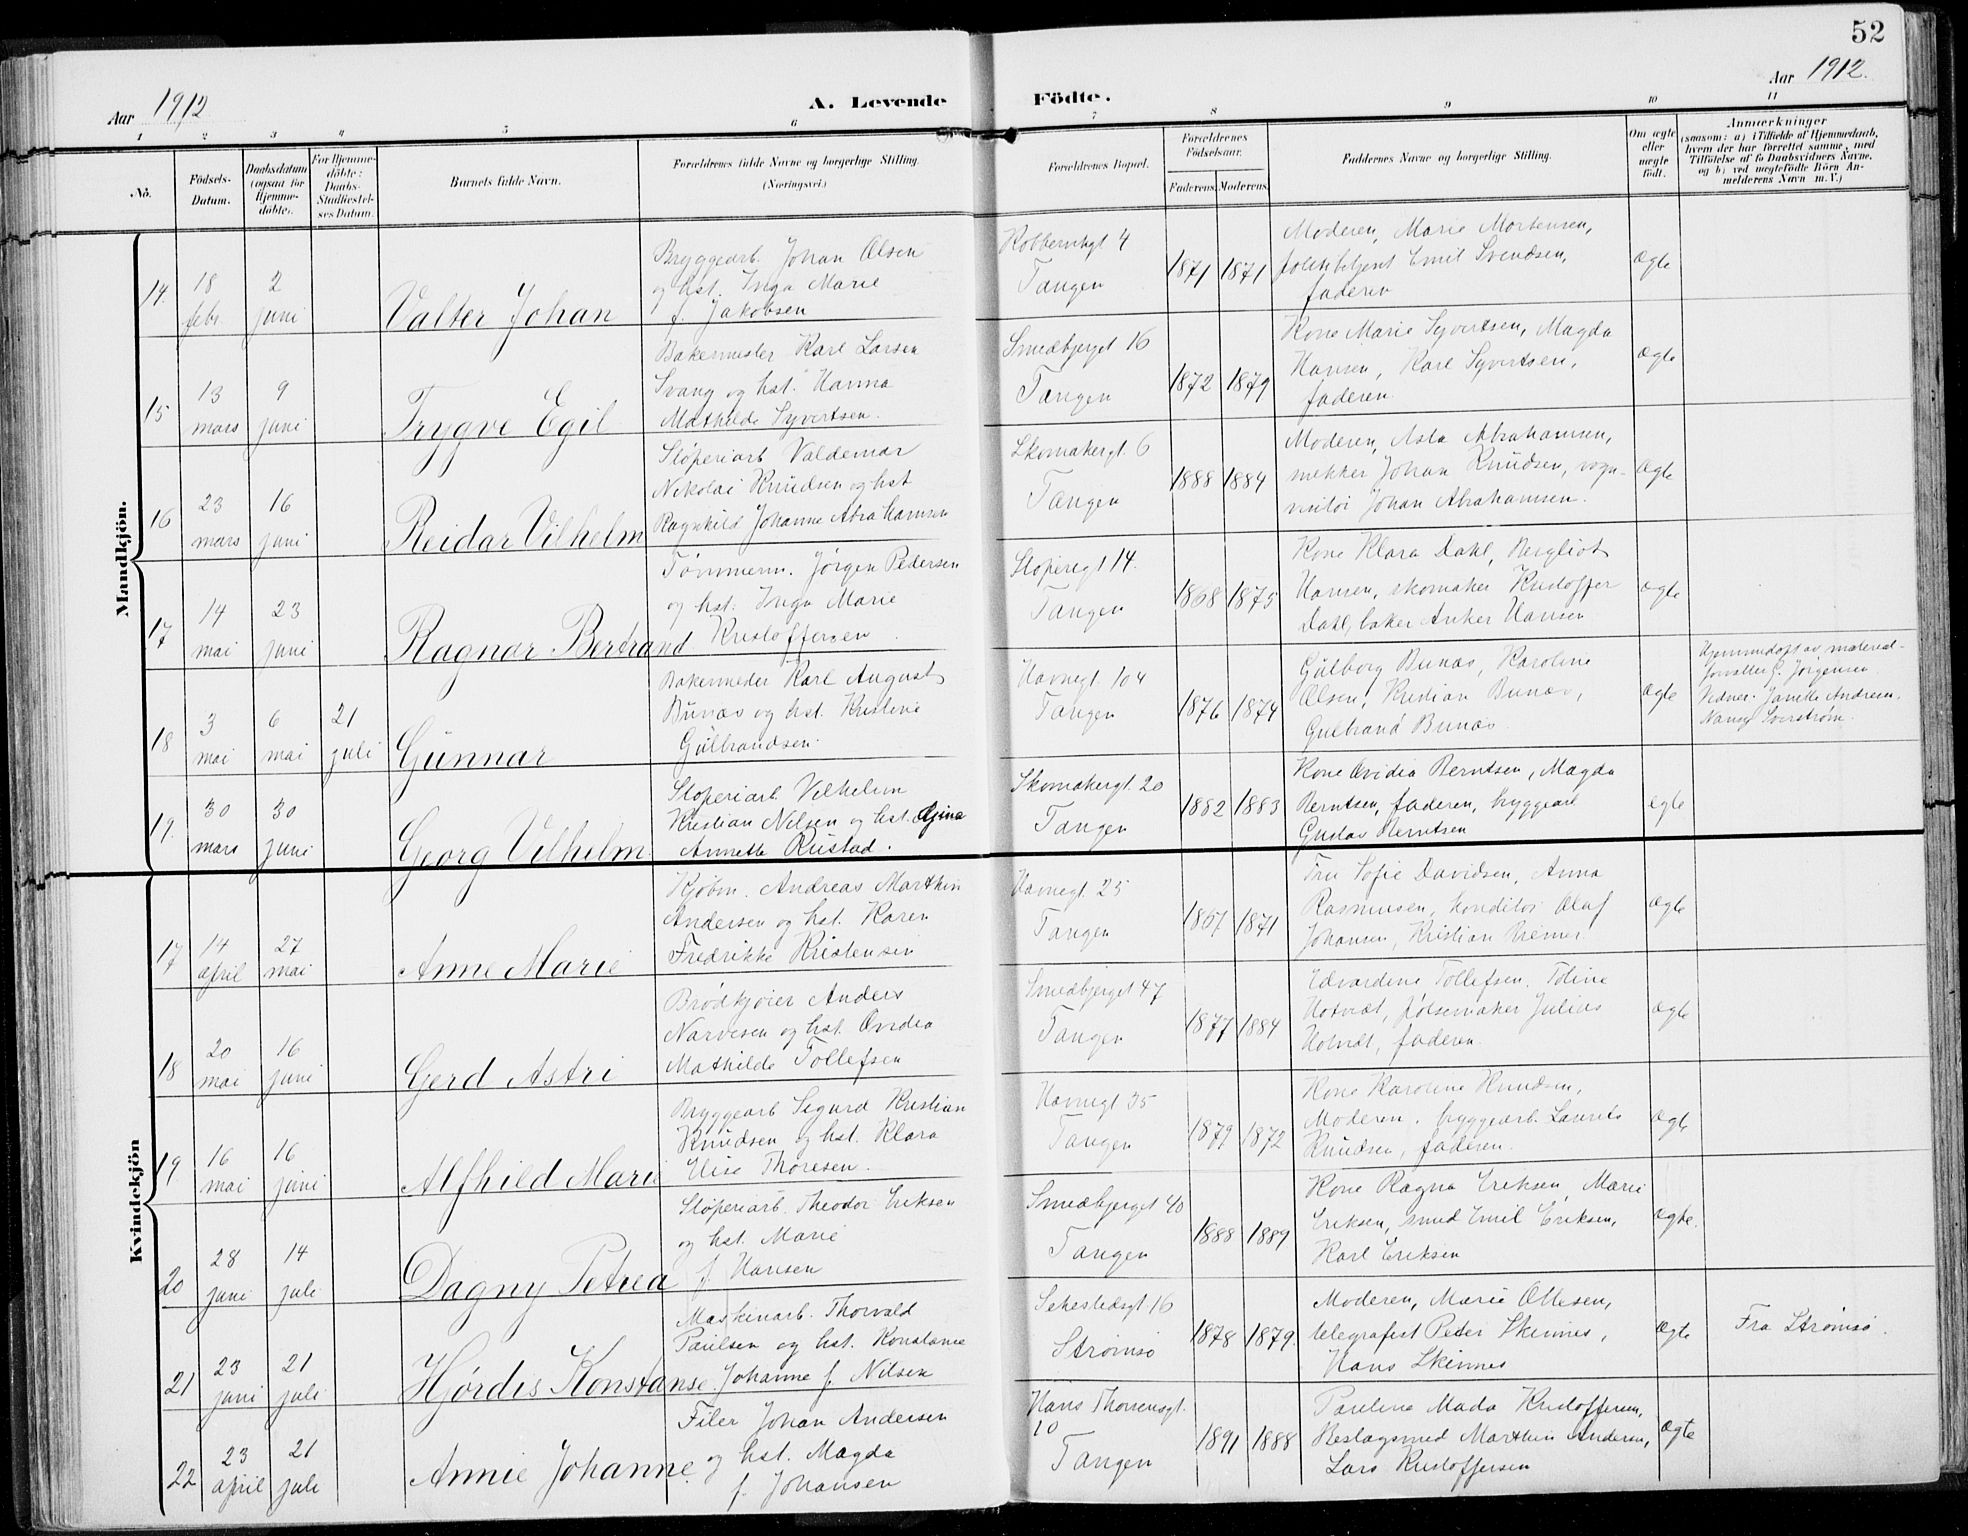 52
Aar 1912
A. Levende Födte.
Aar 1912.
1 2 3 4 5 6 7 8 9 10 11
No.
Födsels-
Datum.
Daabsdatum
(ogsaa for
Hjemme-
döbte).
For Hjemme-
döbte:
Daabs-
Stadfæstel-
ses Datum.
Barnets fulde Navn.
Forældrenes fulde Navne og borgerlige Stilling.
(Næringsvei.)
Forældrenes Bopæl.
Forældrenes
Födselsaar.
Faderens. Moderens.
Faddernes Navne og borgerlige Stilling.
Om ægte
eller
uægte
födt.
Anmærkninger
(saasom: a) i Tilfælde af Hjemmedaab,
hvem der har forrettet samme, med
Tilföielse af to Daabsvidners Navne,
og b) ved uægtefödte Börn An-
melderens Navn m. V.)
Mandkjön.
14.
18
febr.
2
juni
Valter Johan
Bryggearb. Johan Olsen
og hst. Inga Marie
f. Jakobsen
Kobbervikgt 4
Tangen
1871
1871
Moderen, Marie Mortensen,
politibetjent Emil Svendsen,
faderen
ægte
15
13
mars
9
juni
Trygve Egil
Bakermester Karl Larsen
Svang og hst. Hanna
Mathilde Syvertsen.
Smedbjerget 16
Tangen
1872
1879
Kone Marie Syvertsen, Magda
Hansen, Karl Syvertsen,
faderen
ægte
16
23
mars
16
juni
Reidar Vilhelm
Sliperiarb Valdemar
Nikolai Knudsen og hst
Ragnhild Johanne Abrahamsen
Skomakergt 6
Tangen
1888
1884
Moderen, Asta Abrahamsen,
snekker Johan Knudsen, vogn-
visitør Johan Abrahamsen.
ægte
17
14
mai
23
juni
Ragnar Bertrand
Tømmerm. Jørgen Pedersen
og hst. Inga Marie
Kristoffersen
Sliperigt 14.
Tangen
1868
1875
Kone Klara Dahl, Bergliot
Hansen, skomaker Kristoffer
Dahl, baker Anker Hansen
ægte
18
3
mai
6
mai
21
juli
Gunnar
Bakermester Karl August
Bunæs og hst. Kristine
Gulbrandsen.
Havnegt 104
Tangen
1876
1874
Gulborg Bunæs, Karoline
Olsen, Kristian Bunæs,
Gulbrand Bunæs.
ægte
Hjemmedøpt av material-
forvalter G. Jørgensen
Vidner: Janette Andresen,
Nancy
19.
30
mars
30
juni
Georg Vilhelm
Sliperiarb. Vilhelm
Kristian Nilsen og hst. Gina
Annette Rustad.
Skomakergt. 20
Tangen
1882
1883
Kone Ovidia Berntsen, Magda
Berntsen, faderen, bryggearb
Gustav Berntsen
ægte
Kvindekjön
17
14
april
27
mai
Anne Marie
Kjøbm. Andreas Marthin
Andersen og hst. Karen
Fredrikke Kristensen
Havnegt. 25
Tangen
1867
1871
Fru Sofie Davidsen, Anna
Rasmussen, konditor Olaf
Johansen, Kristian
ægte
18
20
mai
16
juni
Gerd Astri
Brødkjører Anders
Narvesen og hst. Ovidia
Mathilde Tollefsen
Smedbjerget 47
Tangen
1877
1884
Edvardine Tollefsen. Toline
Hotvedt, pølsemaker Julius
Hotvedt, faderen.
ægte
19
16
mai
16
juni
Alfhild Marie
Bryggearb Sigurd Kristian
Knudsen og hst. Klara
Elise Thoresen.
Havnegt 35
Tangen
1879
1872
Kone Karoline Knudsen,
Moderen, bryggearb. Laurits
Knudsen, faderen.
ægte
20
28
juni
14
juli
Dagny Petrea
Sliperiarb. Theodor Eriksen
og hst. Marie
f. Hansen
Smedbjerget 40
Tangen
1888
1889
Kone Ragna Eriksen, Marie
Eriksen, smed Emil Eriksen,
Karl Eriksen
ægte.
21
23
juni
21
juli
Hjørdis Konstanse
Maskinarb. Thorvald
Paulsen og hst. Konstanse
Johanne f. Nilsen
Sehestedsgt 16
Strømsø
1878
1879.
Moderen, Marie Ottesen,
telegrafist Peder Skinnes,
Hans Skinnes
ægte
Fra Strømsø.
22
23
april
21
juli
Annie Johanne
Filer Johan Andersen
og hst. Magda
f. Johansen
Hans Thornesgt.
10
Tangen
1891
1888
Pauline Mada Kristoffersen,
Beslagsmed Marthin Andersen,
Lars Kristoffersen
ægte